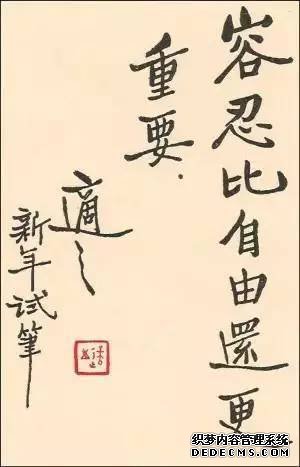 容忍比自由還更
重要.
適之
新年試筆
织梦内容管理系统
DEDECMS.COM